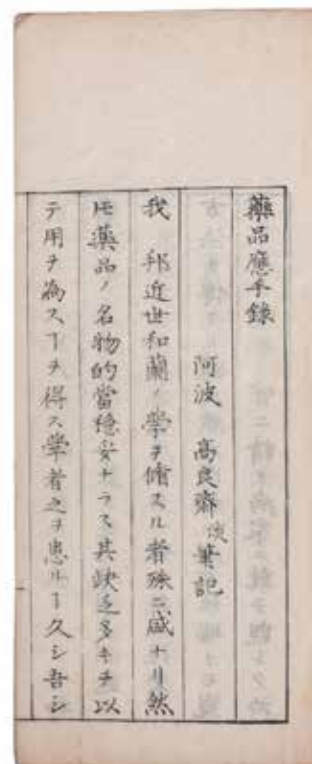 藥品應手錄
阿波 高良齋淡筆記
我 邦近世和蘭ノ學ヲ脩スル者殊ニ盛ナリ然
𪜈藥品ノ名物的當穩妥ナラス其缺乏多キヲ以
テ用ヲ為スヿヲ得ス學者之ヲ患ルヿ久シ吾シ